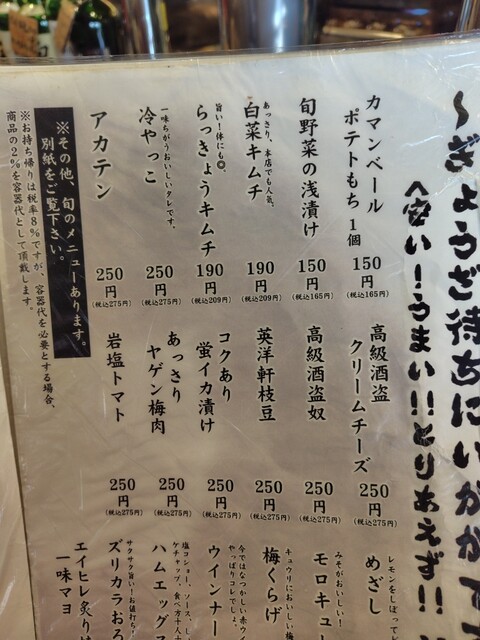 〜ぎょうざ待ちにいかがです
へ安い!うまい!!とりあえず!!
カマンベール
ポテトもち 1個
150円
(税込165円)
旬野菜の浅漬け
150円
(税込165円)
あっさり、本店でも人気。
白菜キムチ
190円
(税込209円)
旨い!体にも◎。
らっきょうキムチ
190円
(税込209円)
一味ちがうおいしいタレです。
冷やっこ
250円
(税込275円)
アカテン
250円
(税込275円)
高級酒盗
クリームチーズ
250円
(税込275円)
高級酒盗奴
250円
(税込275円)
英洋軒枝豆
250円
(税込275円)
コクあり
蛍イカ漬け
250円
(税込275円)
あっさり
ヤゲン梅肉
250円
(税込275円)
岩塩トマト
250円
(税込275円)
レモンをしぼって
めざし
みそがおいしい!
モロキュー
キュウリにおいしい梅
梅くらげ
今ではなつかしい赤ウイ
やっぱりコレでしょ。
ウインナー
塩コショー、ソース、し
ケチャップ、食べ方十人十
ハムエッグ
サクサク旨い!お値打ち!
ズリカラおろ
エイヒレ炙り
一味マヨ
※その他、旬のメニューあります。
別紙をご覧下さい。
※お持ち帰りは税率8%ですが、容器代を必要とする場合、
商品の2%を容器代として頂戴します。